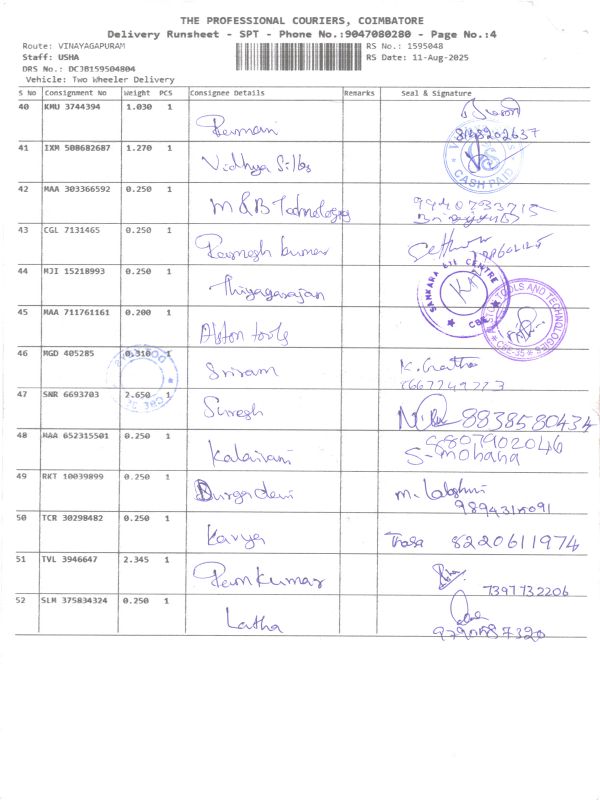 THE PROFESSIONAL COURIERS, COIMBATORE
Delivery Runsheet - SPT - Phone No.:9047080280 - Page No.:4
Route: VINAYAGAPURAM RS No.: 1595048
Staff: USHA RS Date: 11-Aug-2025
DRS No.: DCJB159504804
Vehicle: Two Wheeler Delivery
S No Consignment No Weight PCS Consignee Details Remarks Seal & Signature
40 KMU 3744394 1.030 1
Ramani 8148202637
41 IXM 508682687 1.270 1
Vidhya Silks CASH PAID
42 MAA 303366592 0.250 1
M&B Technologies 9940733715
43 CGL 7131465 0.250 1
Ramesh kumar
44 MJI 15218993 0.250 1
Thiyagarajan SANKARA EYE CENTRE CBE
45 MAA 711761161 0.200 1
Alston tools TOOLS AND TECHNOLOGIES CBE-35
46 MGD 405285 0.310 1
Sriram
47 SNR 6693703 2.650 1
Suresh 8838580434
48 MAA 652315501 0.250 1
8807902046
Kalaivani S-mohana
49 RKT 10039899 0.250 1
Durgadevi m. Lakshmi
9894315091
50 TCR 30298482 0.250 1
Kavya 8220611974
51 TVL 3946647 2.345 1
Ramkumar 7397732206
52 SLM 375834324 0.250 1
Latha